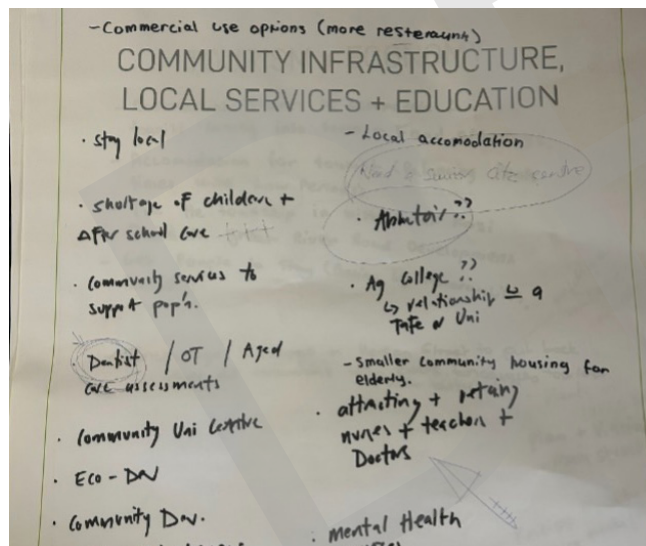 - Commercial use options (more resteraunts)
COMMUNITY INFRASTRUCTURE,
LOCAL SERVICES + EDUCATION
• stay local
• shortage of childcare +
After school care +++
• Community services to
support pop'n.
Dentist / OT / Aged
care assessments
• Community Uni Centre
• Eco - Dev
• Community Dev.
- Local accomodation
Need a centre
• Abbatoir ??
• Ag College ??
↳ relationship w a
Tafe or Uni
- Smaller community housing for
elderly.
• attracting + retaing
nurses + teachers +
Doctors
• mental Health